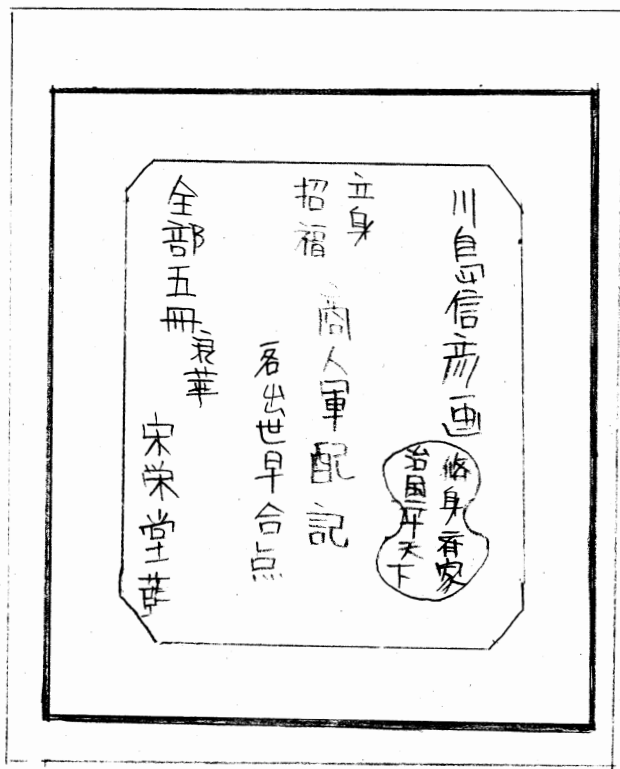 川島信彦画
修身斉家
治国平天下
立身
招福
商人軍配記
名出世早合点
全部五冊
浪華
宋栄堂